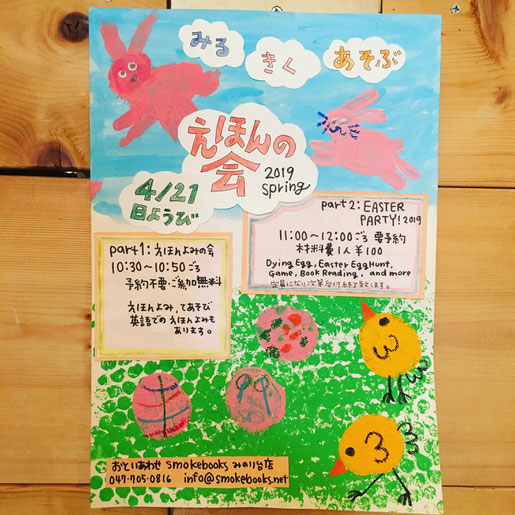 みる きく あそぶ
えほんの
会 2019
spring
4/21
日ようび
part1: えほんよみの会
10:30〜10:50ごろ
予約不要・ご参加無料
えほんよみ, てあそび
英語でのえほんよみも
あります。
part2: EASTER
PARTY! 2019
11:00〜12:00ごろ 要予約
材料費1人¥100
Dying Egg, Easter Egg Hunt,
Game, Book Reading, and more
定員になり次第受付終了致します。
おといあわせ smokebooks みのり台店
047-705-0816 info@smokebooks.net